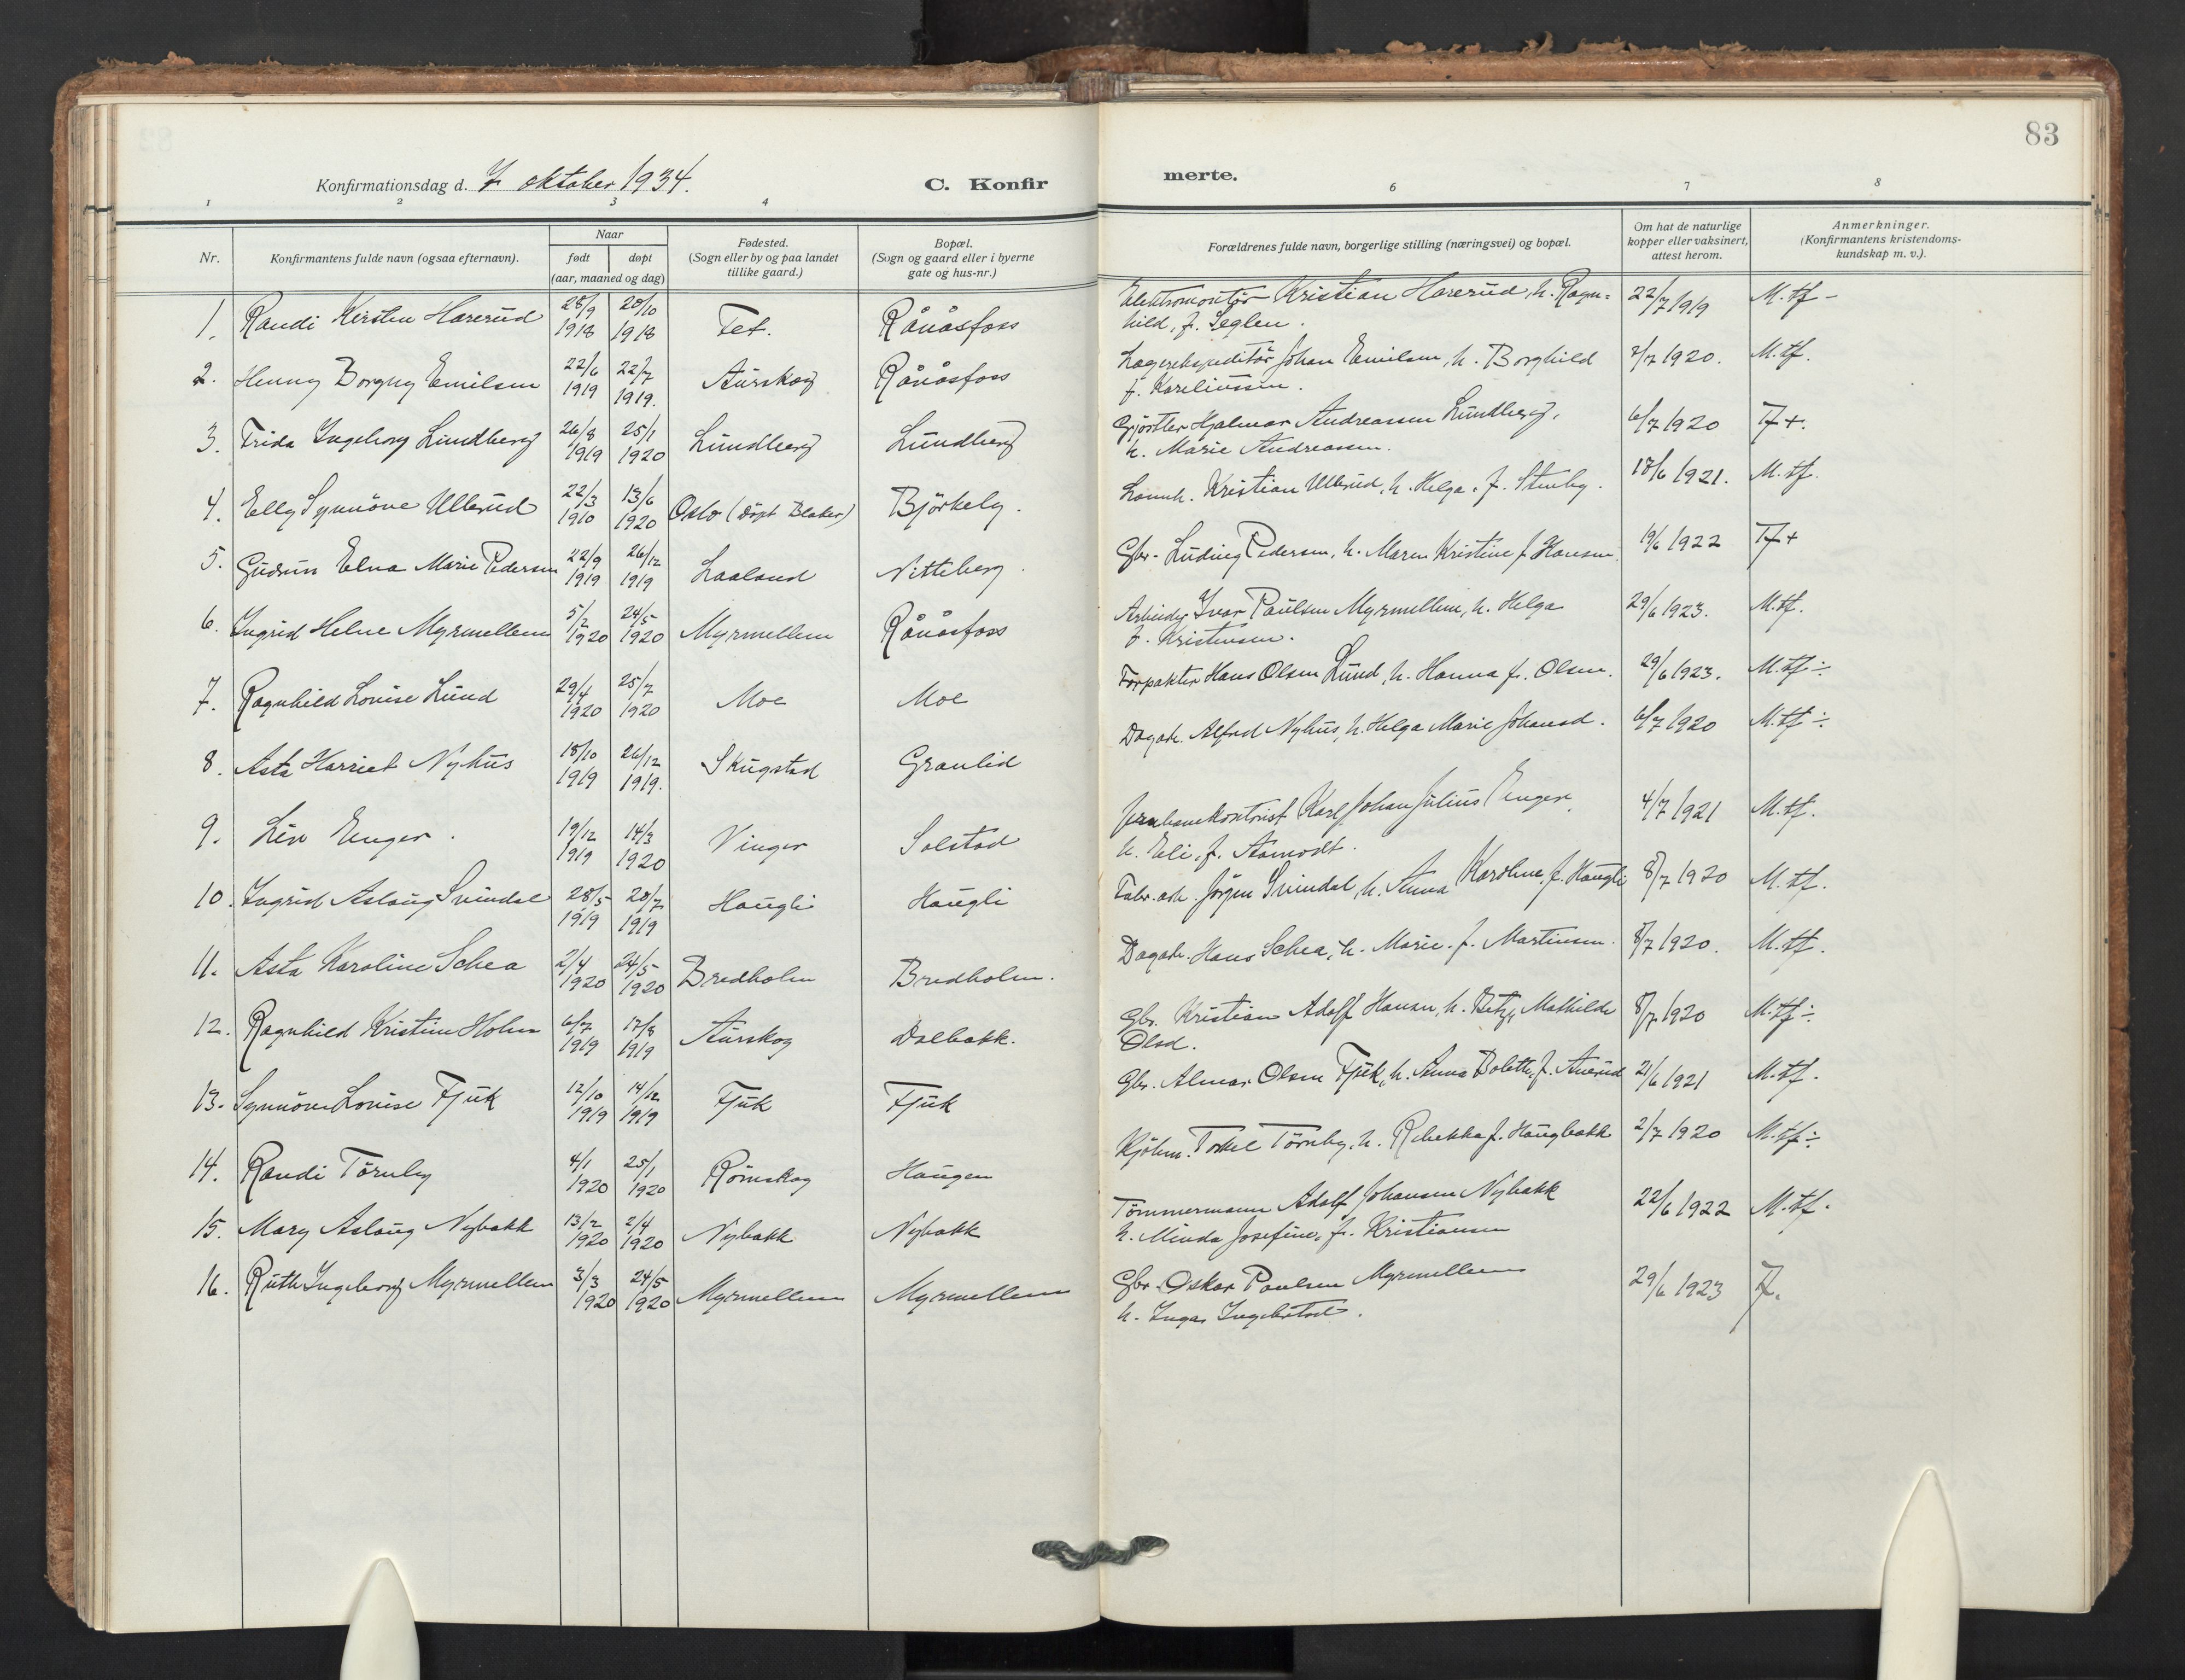 83
Konfirmationsdag d. 7 oktober 1934.
C. Konfirmerte.
1 2 3 4 6 7 8
Nr.
Konfirmantens fulde navn (ogsaa efternavn).
Naar
født døpt
(aar, maaned og dag)
Fødested.
(Sogn eller by og paa landet
tillike gaard.)
Bopæl.
(Sogn og gaard eller i byerne
gate og hus-nr.)
Forældrenes fulde navn, borgerlige stilling (næringsvei) og bopæl.
Om hat de naturlige
kopper eller vaksinert,
attest herom.
Anmerkninger.
(Konfirmantens kristendoms-
kundskap m. v.).
1. Randi Kirsten Harerud 28/9 1918 20/10 1918 Fet. Rånåsfoss Elektromontør Kristian Harerud, h. Ragn= 22/7 1919 M.tf -
hild, f. Seglen.
2. Henny Borgny Emilsen 22/6 1919 22/7 1919. Aurskog Rånåsfoss Lagerekspeditör Johan Emilsen, h. Borghild 2/7 1920. M.tf.
f. Kareliussen.
3. Frida Ingeborg Lundberg 26/8 1919 25/1 1920 Lundberg Lundberg Gjørtler Hjalmar Andreassen Lundberg, 6/7 1920 Tf +.
h. Marie Andreassen.
4. Elly Synnöve Ullerud 22/3 1910 13/6 1920 Oslo (døpt Blaker) Björkely. Kristian Ullerud, h. Helga. f. Stenby. 18/6 1921. M.tf.
5. Gudrun Elna Marie Pedersen 22/9 1919 26/12 1919 Laaland Nitteberg. Gbr. Ludvig Pedersen, h. Maren Kristine f. Hansen 19/6 1922 Tf +
6. Ingrid Helene Myrmellem 5/2 1920 24/5 1920 Myrmellem Rånåsfoss Arbeidsg. Ivar Paulsen Myrmellem, h. Helga 29/6 1923. M.tf.
f. Kristensen.
7. Ragnhild Lovise Lund 29/4 1920 25/7 1920 Moe Moe Forpakter Hans Olsen Lund, h. Hanna f. Olsen. 29/6 1923. M.tf ÷
8. Asta Harriet Nyhus 18/10 1919 26/12 1919. Skugstad Granlid Dagarb. Alfred Nyhus, h. Helga Marie Johansd. 6/7 1920 M.tf ÷
9. Liv Enger. 19/12 1919 14/3 1920 Vinger Solstad Jernbanekontorist Karl Johan Julius Enger 4/7 1921 M.tf.
h. Eli, f. Aamodt.
10. Ingrid Aslaug Svindal 28/5 1919 20/7 1919 Haugli Haugli Fabr.arb. Jörgen Svindal, h. Anna Karoline, f. Haugli 8/7 1920 M.tf.
11. Asta Karoline Schea 2/4 1920 24/5 1920 Bredholm Bredholm. Dagarb. Hans Schea, h. Marie. f. Martinsen. 8/7 1920. M.tf.
12. Ragnhild Kristine Holm 6/7 1919 17/8 1919 Aurskog Dalbakk. Gbr. Kristian Adolf Hansen, h. Betzy Mathilde 8/7 1920 M.tf ÷
Olsd.
13. Synnöve Lovise Fjuk 12/10 1919 14/12 1919 Fjuk Fjuk Gbr. Almar Olsen Fjuk, h. Anna Bolette, f. Auerud 21/6 1921 M.tf.
14. Randi Törnby 4/1 1920 25/1 1920 Römskog Haugen Kjöbm. Torkel Törnby, h. Rebekka f. Haugbakk 2/7 1920 M.tf ÷
15. Mary Aslaug Nybakk 13/2 1920 2/4 1920 Nybakk Nybakk Tömmermann Adolf Johansen Nybakk 22/6 1922 M.tf.
h. Minda Josefine, f. Kristiansen
16. Ruth Ingeborg Myrmellem 3/3 1920 24/5 1920 Myrmellem Myrmellem Gbr. Oskar Paulsen Myrmellem 29/6 1923 Tf.
h. Inga Ingebretsd.